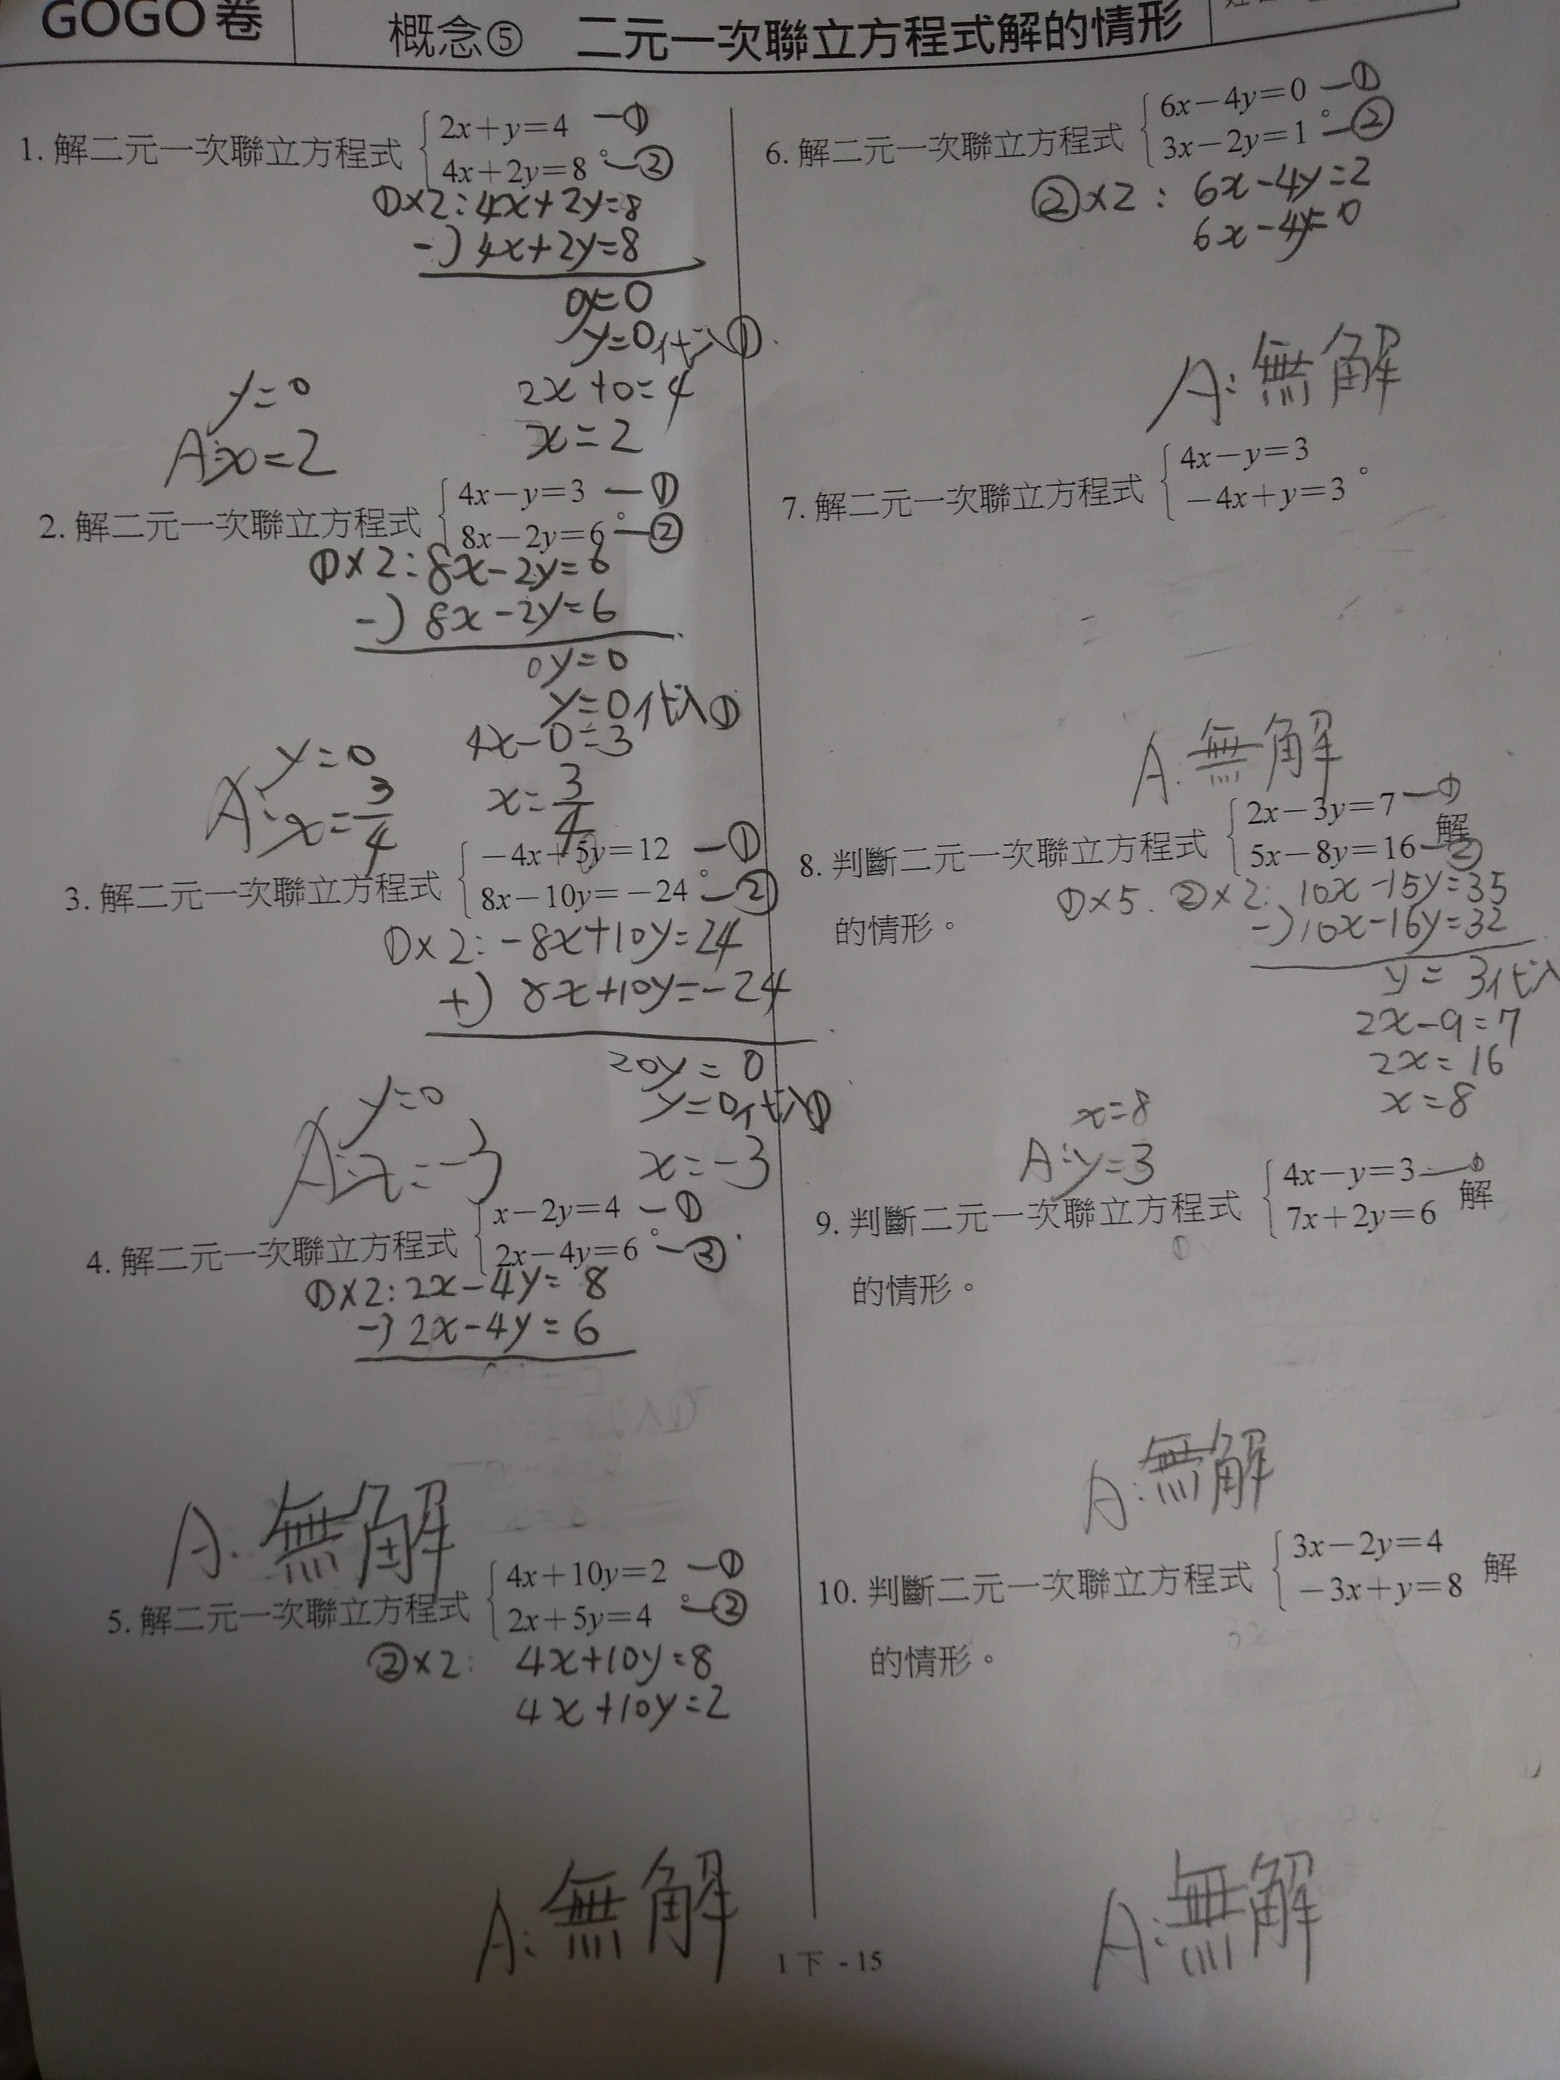 GOGO卷
概念⑤ 二元一次聯立方程式解的情形
1. 解二元一次聯立方程式
2x+y=4 —①
4x+2y=8。—②
①×2:4x+2y=8
-) 4x+2y=8
0y=0
y=0代入①
2x+0=4
x=2
y=0
A:x=2
2. 解二元一次聯立方程式
4x-y=3 —①
8x-2y=6。—②
①×2:8x-2y=6
-) 8x-2y=6
0y=0
y=0代入①
4x-0=3
x=3/4
y=0
A:x=3/4
3. 解二元一次聯立方程式
-4x+5y=12 —①
8x-10y=-24。—②
①×2:-8x+10y=24
+) 8x+10y=-24
20y=0
y=0代入①
x=-3
y=0
A:x=-3
4. 解二元一次聯立方程式
x-2y=4 —①
2x-4y=6。—②
①×2:2x-4y=8
-) 2x-4y=6
A:無解
5. 解二元一次聯立方程式
4x+10y=2 —①
2x+5y=4。—②
②×2: 4x+10y=8
4x+10y=2
A:無解
6. 解二元一次聯立方程式
6x-4y=0 —①
3x-2y=1。—②
②×2: 6x-4y=2
6x-4y=0
A:無解
7. 解二元一次聯立方程式
4x-y=3
-4x+y=3。
A:無解
8. 判斷二元一次聯立方程式
2x-3y=7 —①
5x-8y=16 —②
解
的情形。
①×5. ②×2: 10x-15y=35
-) 10x-16y=32
y=3代入
2x-9=7
2x=16
x=8
x=8
A:y=3
9. 判斷二元一次聯立方程式
4x-y=3 —①
7x+2y=6
解
的情形。
A:無解
10. 判斷二元一次聯立方程式
3x-2y=4
-3x+y=8
解
的情形。
A:無解
1下-15